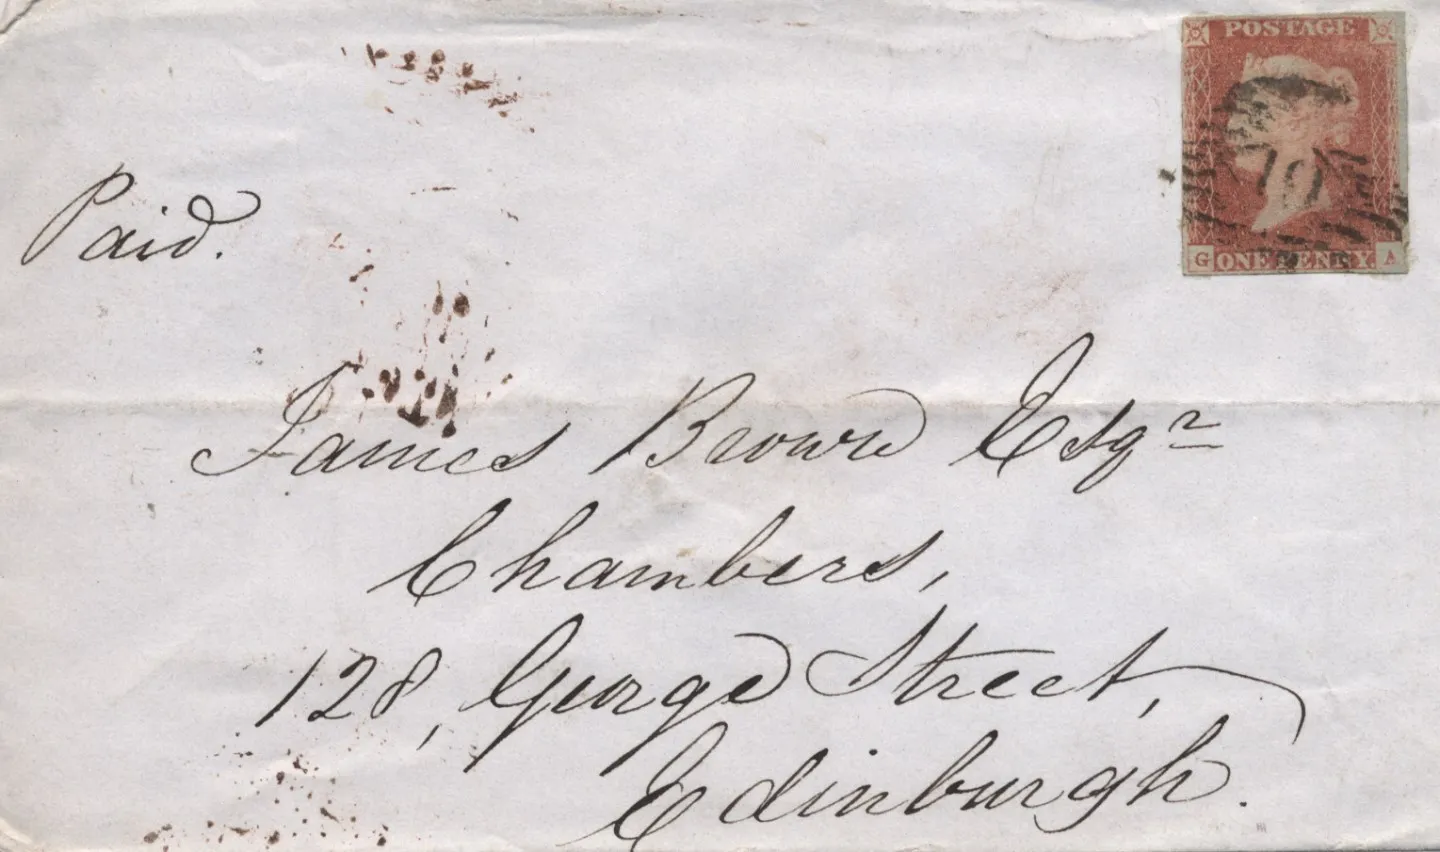 POSTAGE
G ONE PENNY A
Paid.
James Brown Esqr
Chambers,
128, George Street,
Edinburgh.